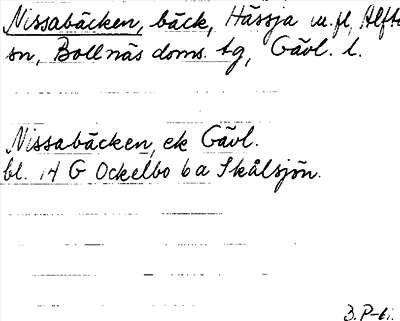 Nissabäcken, bäck, Hässja m.fl, Alfta
sn, Bollnäs doms. tg, Gävl. l.
Nissabäcken, ek Gävl.
bl. 14 G Ockelbo 6a Skålsjön.